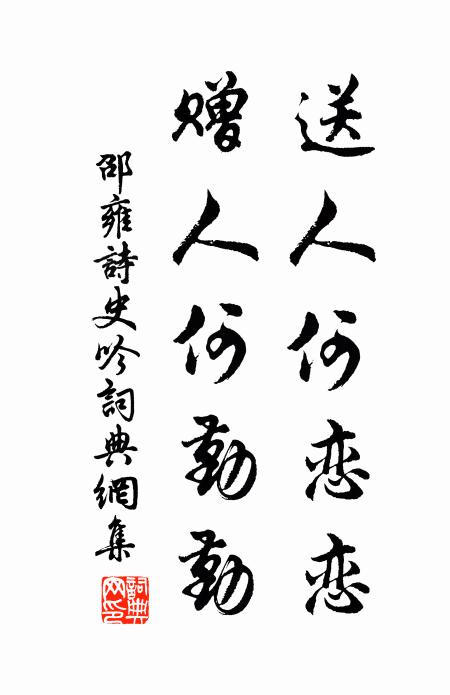 送人何恋恋
赠人何勤勤
邵雍詩史吟詞典網集
詞典網印